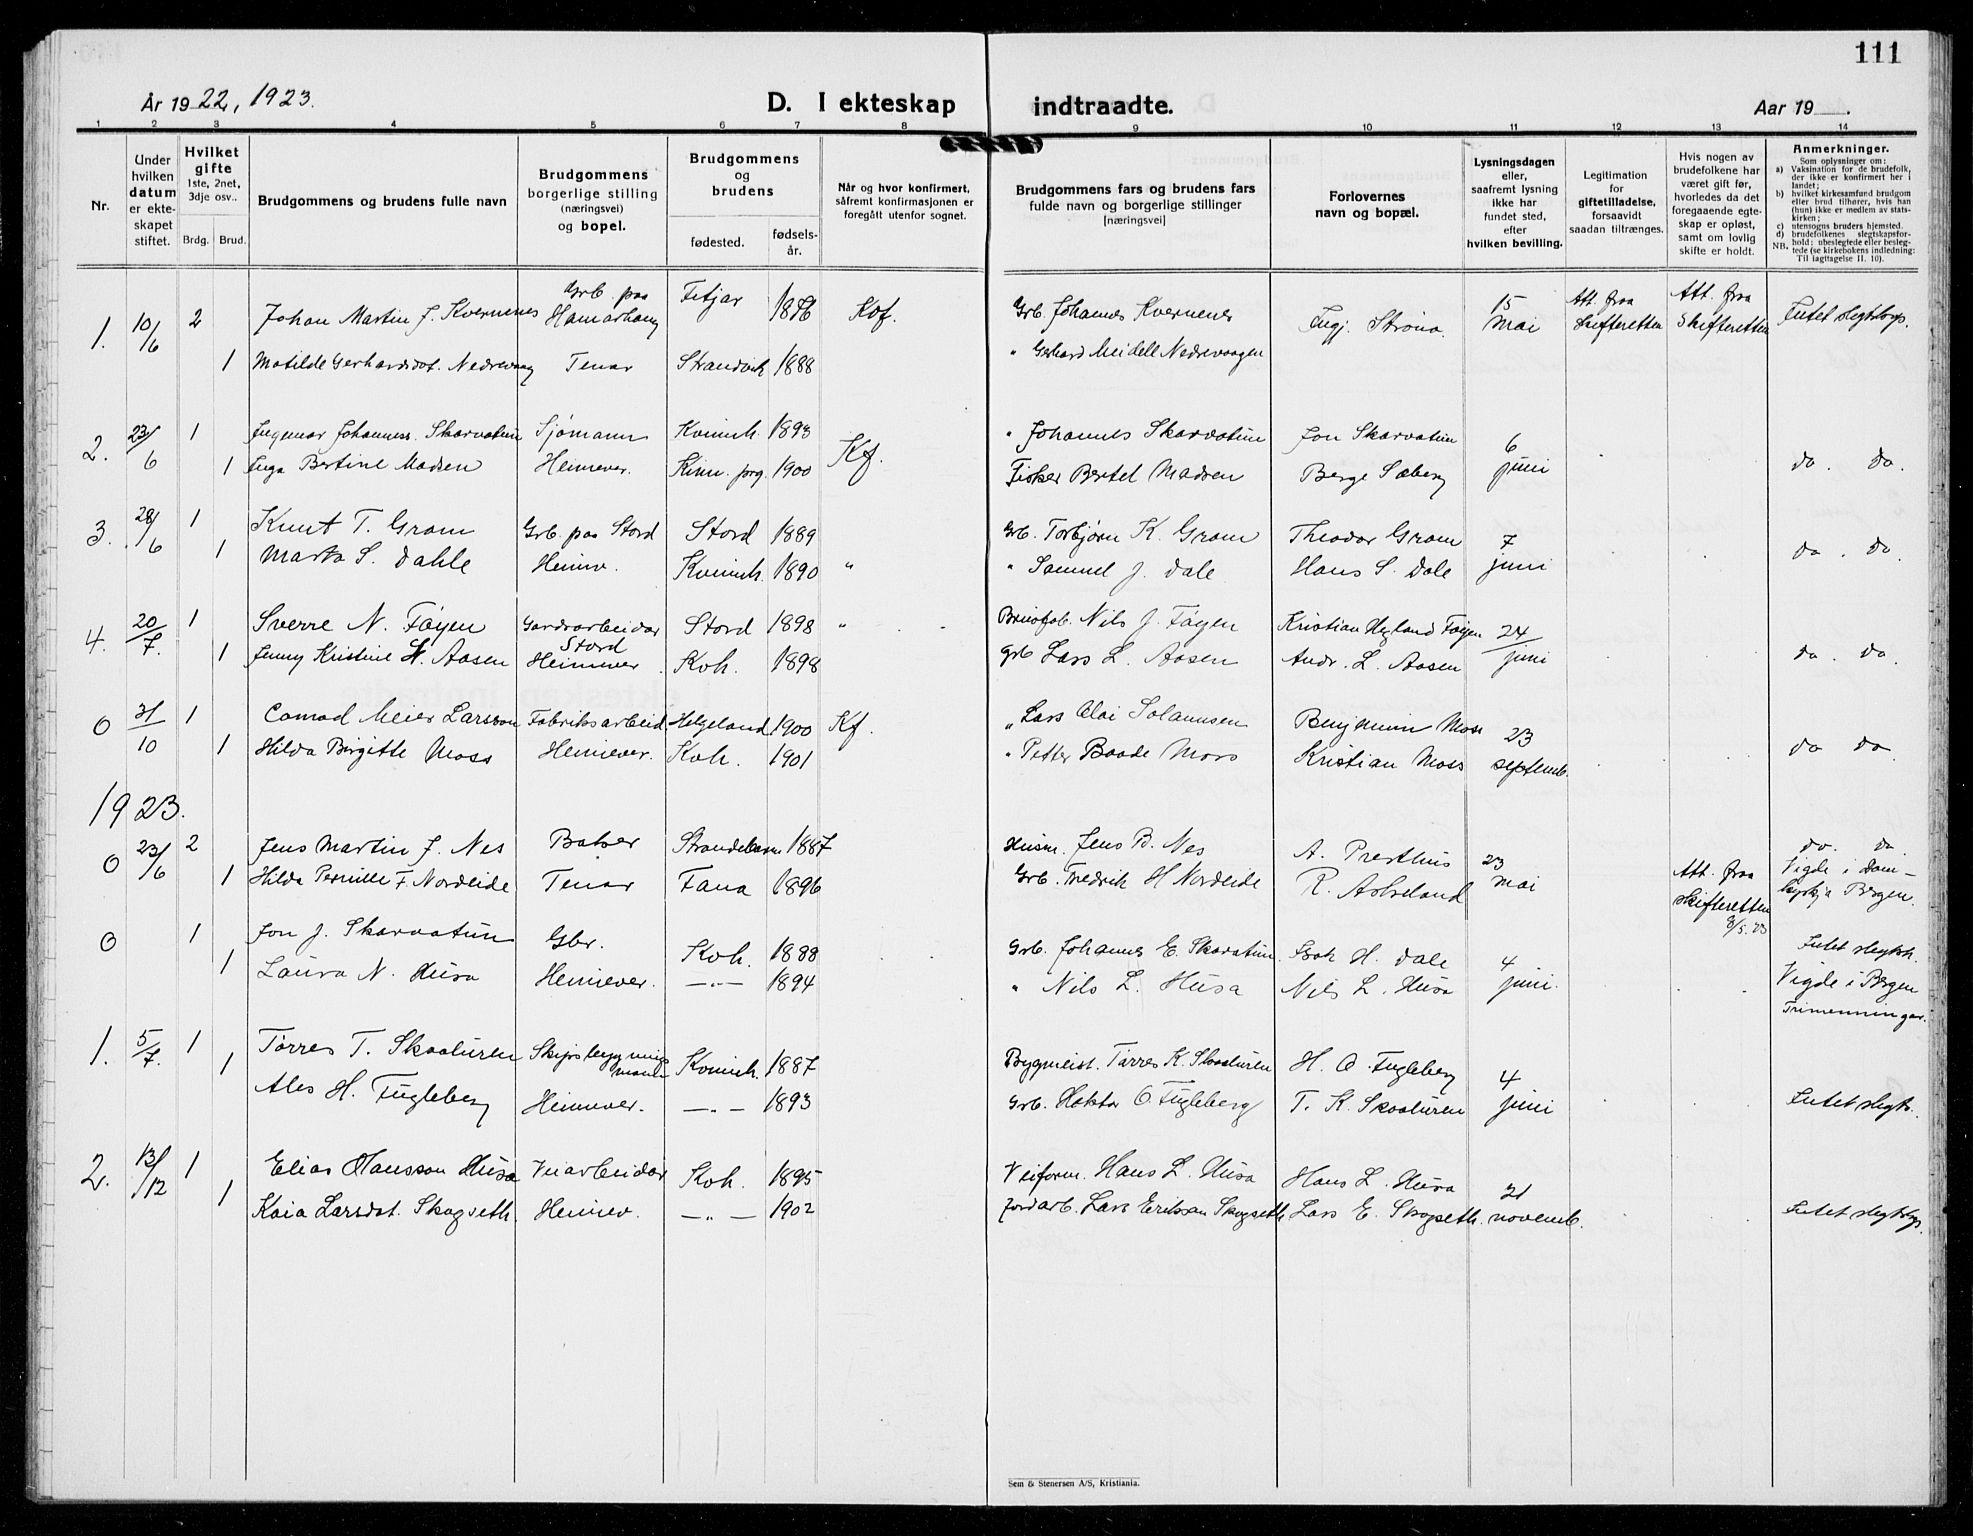 111
År 1922, 1923.
D. I ekteskap indtraadte.
Aar 19 .
1 2 3 4 5 6 7 8 9 10 11 12 13 14
Nr.
Under hvilken datum er ekteskapet stiftet.
Hvilket gifte 1ste, 2net, 3dje osv..
Brdg. Brud.
Brudgommens og brudens fulle navn
Brudgommens borgerlige stilling (næringsvei) og bopel.
Brudgommens og brudens
fødested. fødselsår.
Når og hvor konfirmert, såfremt konfirmasjonen er foregått utenfor sognet.
Brudgommens fars og brudens fars fulde navn og borgerlige stillinger [næringsvei]
Forlovernes navn og bopæl.
Lysningsdagen eller, saafremt lysning ikke har fundet sted, efter hvilken bevilling.
Legitimation for giftetilladelse, forsaavidt saadan tiltrænges.
Hvis nogen av brudefolkene har været gift før, hvorledes da det foregaaende egteskap er opløst, samt om lovlig skifte er holdt.
Anmerkninger.
Som oplysninger om:
a) Vaksination for de brudefolk, der ikke er konfirmert her i landet;
b) hvilket kirkesamfund brudgom eller brud tilhører, hvis han (hun) ikke er medlem av statskirken;
c) utensogns bruders hjemsted.
d) brudefolkenes slegtskapsforhold: ubeslegtede eller beslegtede (se kirkebokens indledning:
NB. Til iagttagelse II. 10).
1. 10/6 2 Johan Martin J. Kvernenes Grb. paa Hamarhaug Fitjar 1886 Kof. Grb. Johannes Kvernenes Ingj. Strøno. 15 mai Att. fraa Skifteretten Att. fraa Skifteretten Intet slegtskap.
1 Matilde Gerhardsdot. Nedrevaag Tenar Strandvik 1888 " Gerhard Meidell Nedrevaagen
2. 23/6 1 Ingemar Johanness. Skarvatun Sjømann Kvinnh. 1893 Kf. " Johannes Skarvatun Jon Skarvatun 6 juni
1 Inga Bertine Madsen Heimever. Kinn prg. 1900 Fisker Bertel Madsen Berge Sæberg do. do.
3. 28/6 1 Knut T. Gram Grb. paa Stord Stord 1889 Grb. Torbjørn K. Gram Theodor Gram 7 juni
1 Marta S. Dahle Heimv. Kvinnh. 1890 " " Samuel J. Dale Hans S. Dale do. do.
4. 20/7. 1 Sverre N. Føyen Gardsarbeidar Stord Stord 1898 " Nils J. Føyen Kristian Hegland Føyen 24/juni
1 Jenny Kristine L. Aasen Heimever Koh. 1898 Grb Lars L. Aasen Andr. L. Aasen do. do.
0 31/10 1 Conrad Meier Larsson Fabriksarbeid. Helgeland 1900 Kf. " Lars Olai Salamusen Benjamin Moss 23 septemb.
1 Hilda Birgitte Moss Heimever. Koh. 1901 " Petter Baade Moss Kristian Moss do do
1923.
0 23/6 2 Jens Martin J. Nes Baker Strandebarm 1887 Husm. Jens B. Nes A. Presthus 23 mai Att. fraa skifteretten 3/5.23 do. do. Vigde i Domkyrkja Bergen.
1 Hilda Pernille F. Nordeide Tenar Fana 1896 Grb. Fredrik H Nordeide R. Askeland
0 1 Jon J. Skarvatun Gbr. Koh. 1888 Grb. Johannes E. Skarvatun Isak H. Dale 4 juni. Intet slegtsk. Vigde i Bergen Trimenningar.
1 Laura N. Husa Heimever. —"— 1894 " Nils L. Husa Nils L. Husa
1. 5/7. 1 Tørres T. Skaaluren Skipsbyggningsmann Kvinnh. 1887 Bygmeist. Tørres K. Skaaluren H. O. Fugleberg 4 juni
1 Ales H. Fugleberg Heimever. —"— 1893 Grb. Haktor O. Fugleberg T. K. Skaaluren Intet slegts.
2. 13/12 1 Elias Hansson Husa Veiarbeidar Koh. 1895 Veiform. Hans L. Husa Hans L. Husa 21 novemb.
1 Kaia Larsdot. Skogseth. Heimev. —"— 1902 Jordarb. Lars Erikson Skogseth Lars E. Skogseth. Intet slegtskp.
Sem & Stenersen A/S, Kristiania.